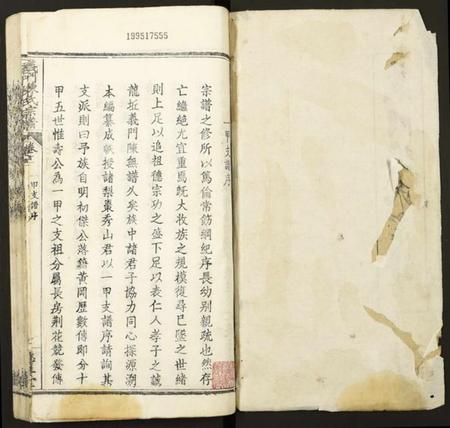 199517555
一甲支譜序
宗譜之修所以篤倫常飭綱紀序長幼別親疏也然存
亡繼絕尤宜重焉旣大收族之規模復尋已墜之世緒
則上足以追祖德宗功之盛下足以表仁人孝子之誠
龍坵義門陳無譜久矣族中諸君子協力同心探源溯
本編纂成帙授諸梨棗秀山君以一甲支譜序請詢其
支派則曰予族自明初傑公落籍黃岡歷數傳即分十
甲五世惟壽公為一甲之支祖分屬長房荊花競發傳
義門陳氏宗譜
卷首
一甲支譜序